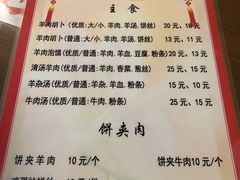 主食
羊肉胡卜(优质/大/小. 羊肉.羊汤.饼丝) 20元、18元
羊肉胡卜(优质/普通:羊肉.羊汤.饼丝) 13元、11元
羊肉泡馍(优质/普通:羊肉.羊血.豆腐.粉条) 20元、15元
清汤羊肉(优质/普通:羊肉.香菜.葱丝) 25元、15元
羊杂汤(优质/普通:羊杂.羊血.粉条) 15元、10元
牛肉汤(优质/普通:牛肉.粉条) 25元、15元
饼夹肉
饼夹羊肉 10元/个 饼夹牛肉10元/个